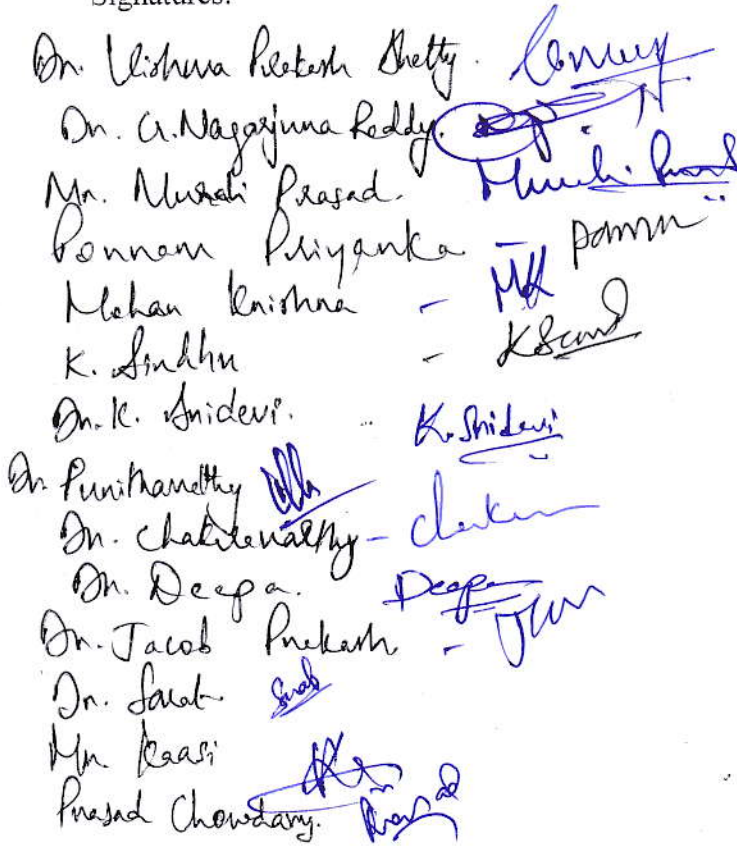 Signatures:
Dr. Vishwa Prakash Shetty.
Dr. G. Nagarjuna Reddy.
Mr. Murali Prasad. Murali Prasad
Ponnam Priyanka -
Mohan Krishna - MK
K. Sindhu -
Dr. K. Sridevi. K. Sridevi
Dr. Punithavathy
Dr. Chakravarthy -
Dr. Deepa. Deepa
Dr. Jacob Prakash -
Dr. Sarat
Mr. Kaasi
Prasad Chowdary. Prasad